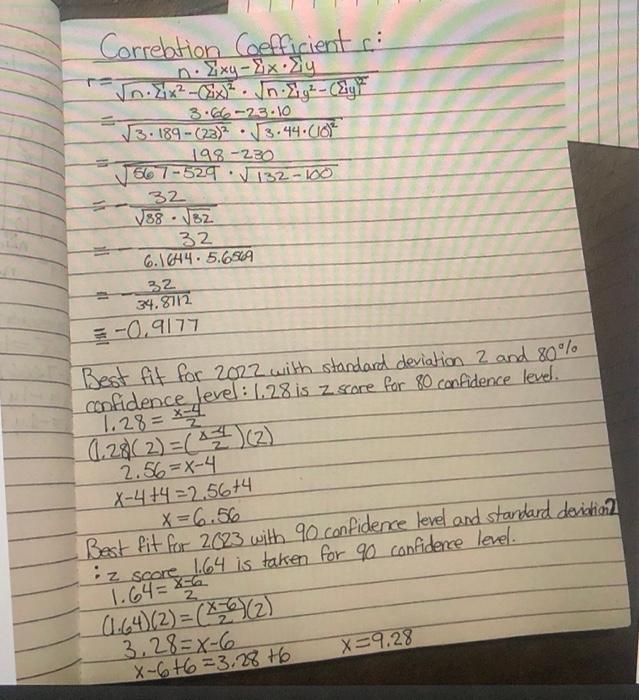 Correlation Coefficient r:
r = n·Σxy-Σx·Σy / √n·Σx²-(Σx)² · √n·Σy²-(Σy)²
= 3·66-23·10 / √3·189-(23)² · √3·44·(10)²
= 198-230 / √567-529 · √132-100
= - 32 / √38 · √32
= - 32 / 6.1644 · 5.6569
= - 32 / 34.8712
= -0.9177
Best fit for 2022 with standard deviation 2 and 80%
confidence level: 1.28 is z score for 80 confidence level.
1.28 = x-4 / 2
(1.28)(2) = (x-4 / 2)(2)
2.56 = x-4
x-4+4 = 2.56+4
x = 6.56
Best fit for 2023 with 90 confidence level and standard deviation 2
: z score 1.64 is taken for 90 confidence level.
1.64 = x-6 / 2
(1.64)(2) = (x-6 / 2)(2)
3.28 = x-6
x-6+6 = 3.28+6 x=9.28